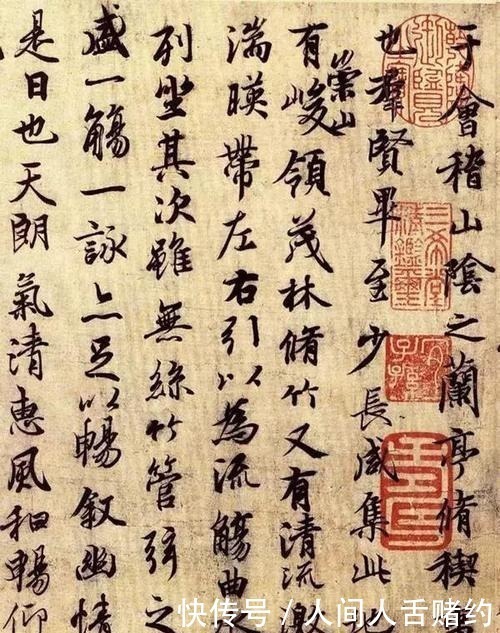 于會稽山陰之蘭亭脩稧
也羣賢畢至少長咸集此地
有崇山峻領茂林脩竹又有清流激
湍暎帶左右引以為流觴曲
列坐其次雖無絲竹管弦之
盛一觴一詠亦足以暢敘幽情
是日也天朗氣清惠風和暢仰
三希堂精鑑璽
宜子孫
快传号 / 人间人舌赌约